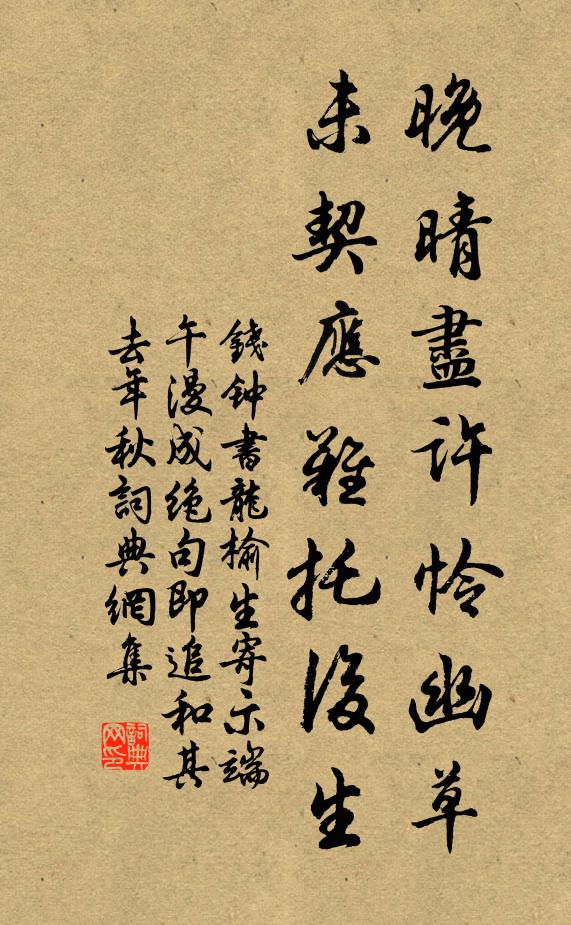 晚晴盡許怜幽草
未契應難托後生
錢钟書龍榆生寄示端
午漫成绝句即追和其
去年秋詞典網集
詞典
网印